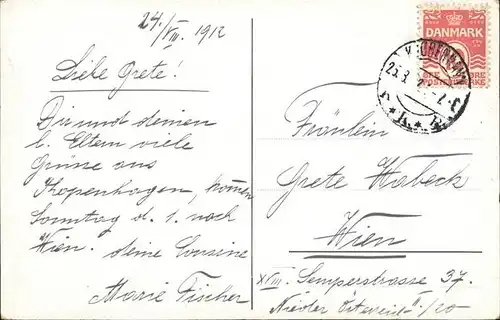 24./VIII. 1912
Liebe Grete!
Dir und deinen
l. Eltern viele
Grüsse aus
Kopenhagen, komen
Sonntag d. 1. nach
Wien.
deine Cousine
Marie Fischer
DANMARK
KJØBENHAVN
Fräulein
Grete Habeck
Wien
XVIII. Semperstrasse 37.
Nieder Österreich II/20